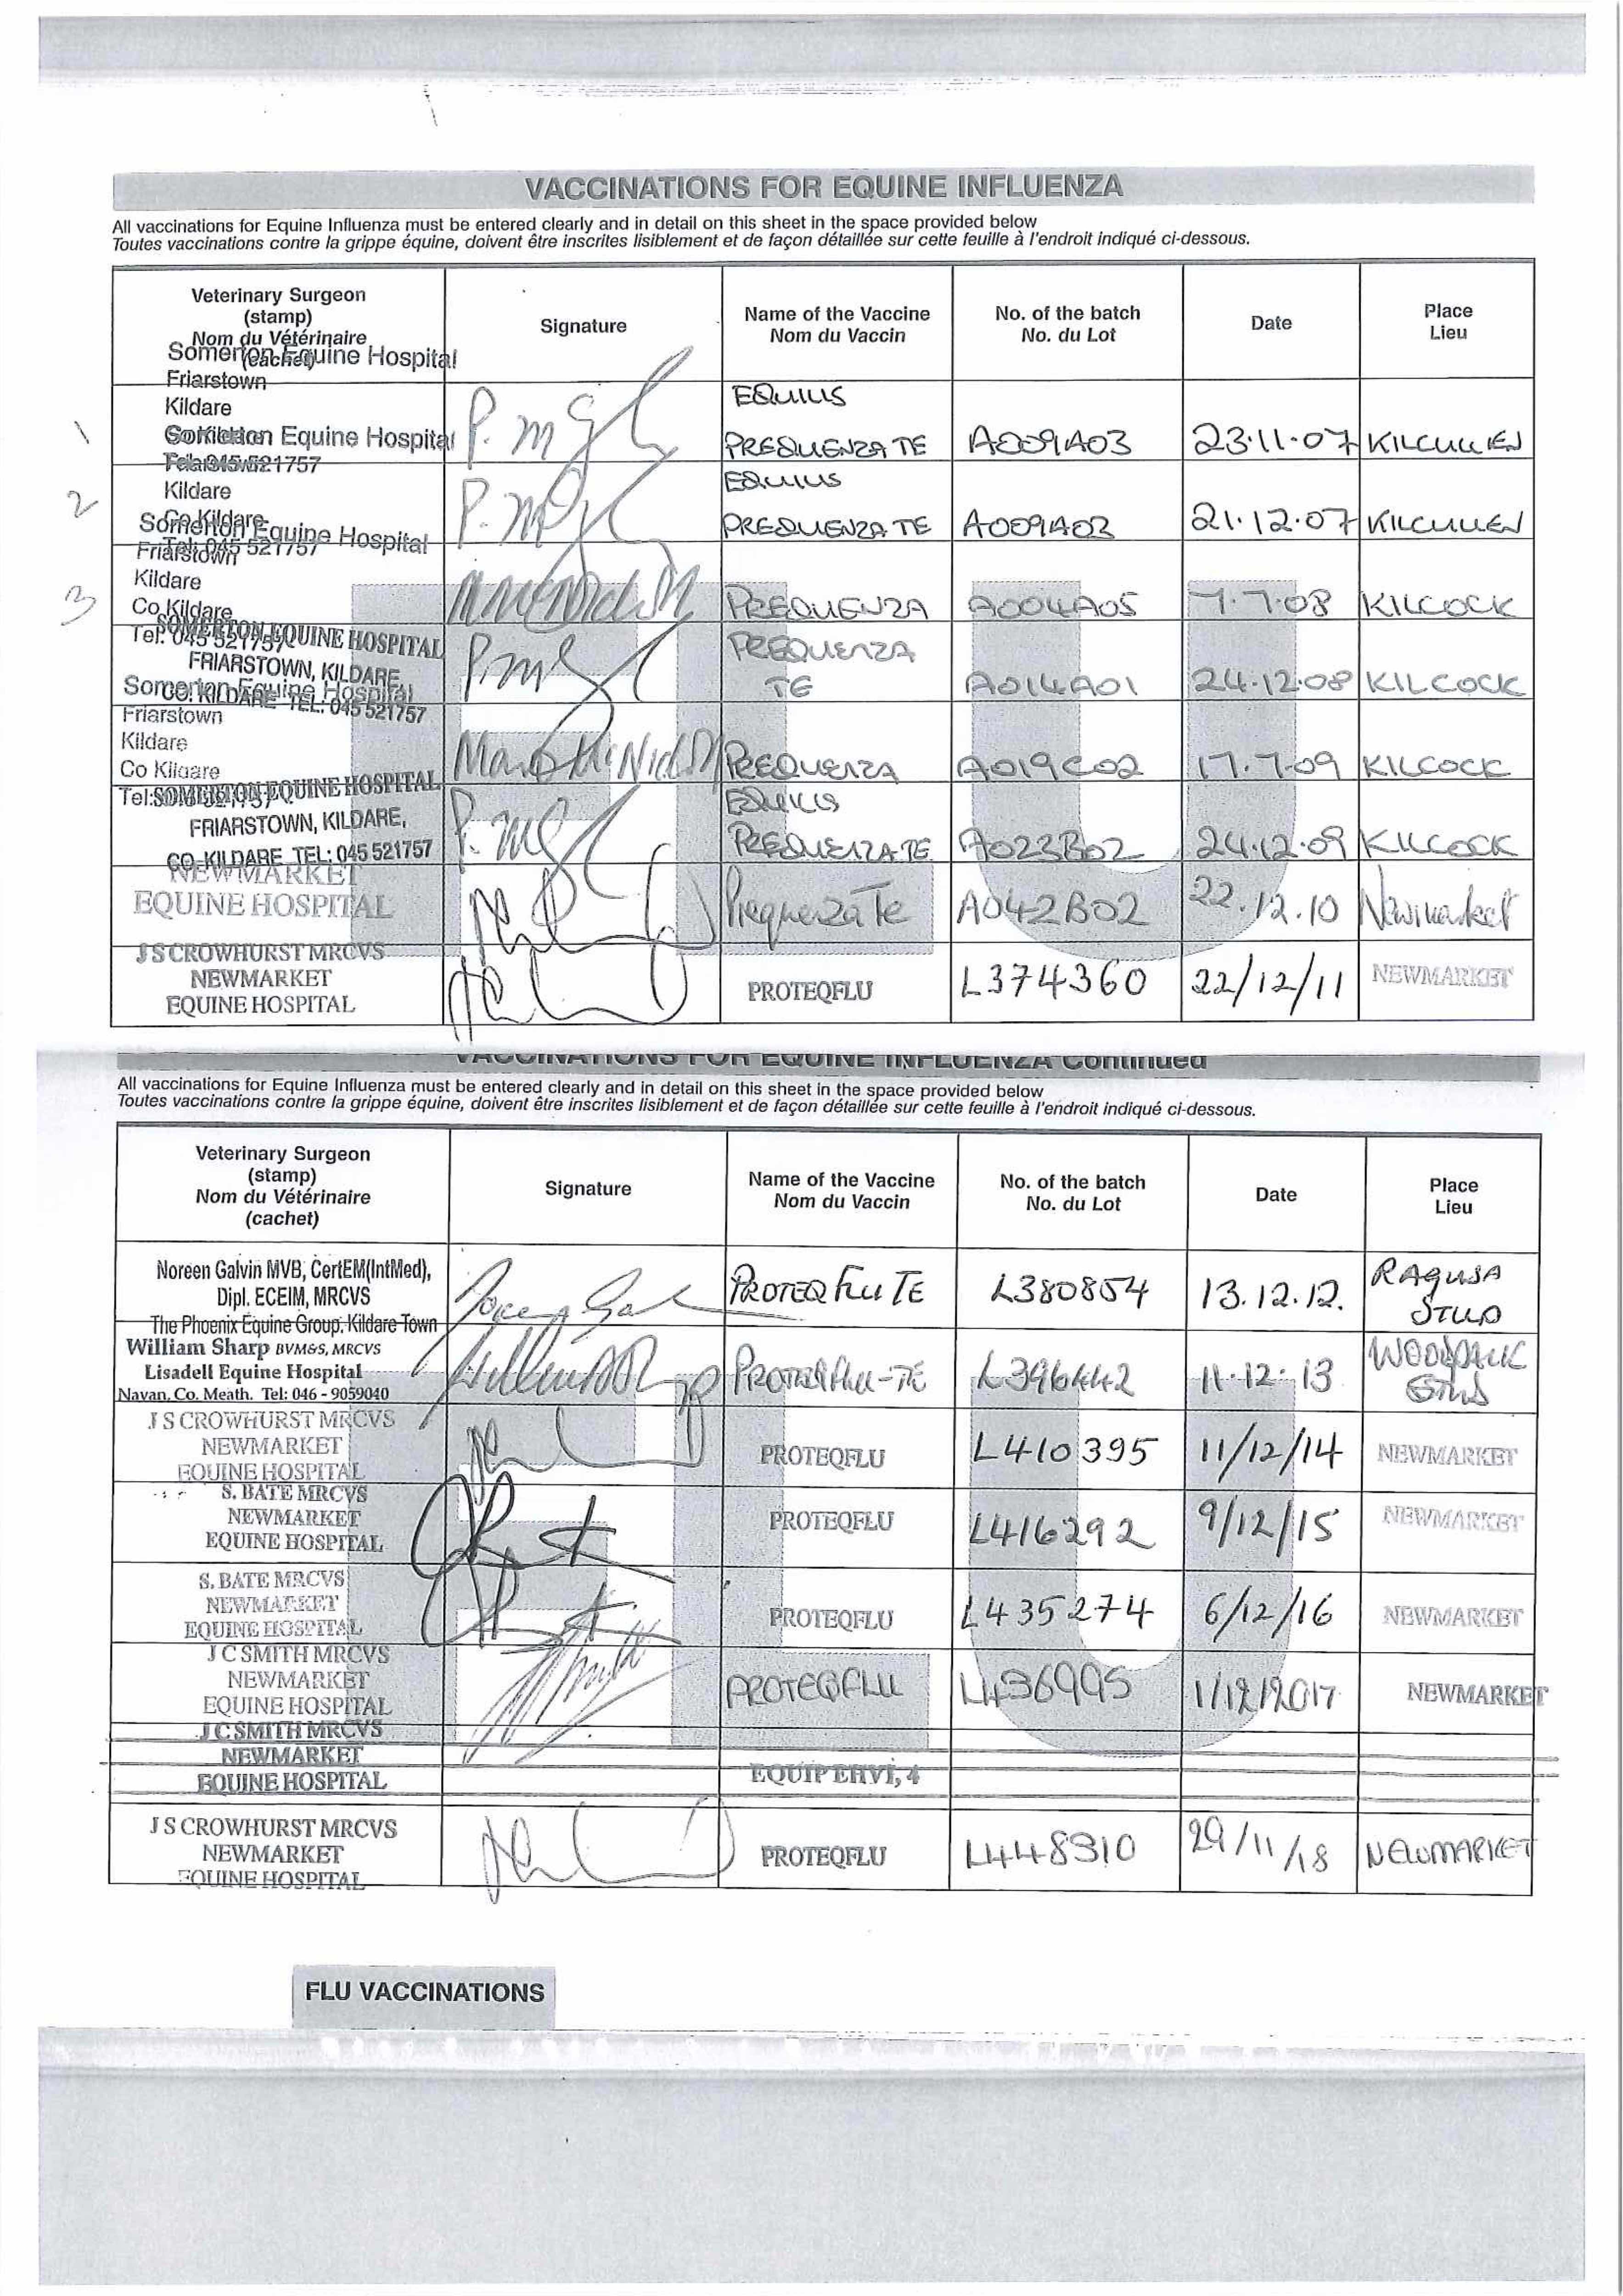 VACCINATIONS FOR EQUINE INFLUENZA
All vaccinations for Equine Influenza must be entered clearly and in detail on this sheet in the space provided below
Toutes vaccinations contre la grippe équine, doivent être inscrites lisiblement et de façon détaillée sur cette feuille à l'endroit indiqué ci-dessous.
Veterinary Surgeon
(stamp)
Nom du Vétérinaire
(cachet)
Signature
Name of the Vaccine
Nom du Vaccin
No. of the batch
No. du Lot
Date
Place
Lieu
Somerton Equine Hospital
Friarstown
Kildare
1
EQUIUS
PREQUENZA TE A009A03 23.11.07 KILCULLEN
Somerton Equine Hospital
Kildare
Co Kildare
Tel: 045 521757
2
EQUIUS
PREQUENZA TE A009A03 21.12.07 KILCULLEN
Somerton Equine Hospital
Friarstown
Kildare
Co Kildare
Tel: 045 521757
3
PREQUENZA A004A05 7.7.08 KILCOCK
SOMERTON EQUINE HOSPITAL
FRIARSTOWN, KILDARE,
CO. KILDARE TEL: 045 521757
PREQUENZA
TE A014A01 24.12.08 KILCOCK
Somerton Equine Hospital
Friarstown
Kildare
Co Kildare
Tel:
PREQUENZA A019C02 17.7.09 KILCOCK
SOMERTON EQUINE HOSPITAL
FRIARSTOWN, KILDARE,
CO. KILDARE TEL: 045 521757
PREQUENZA TE A023B02 24.12.09 KILCOCK
NEWMARKET
EQUINE HOSPITAL
Prequenza Te A042B02 22.12.10 Newmarket
J S CROWHURST MRCVS
NEWMARKET
EQUINE HOSPITAL
PROTEQFLU L374360 22/12/11 NEWMARKET
VACCINATIONS FOR EQUINE INFLUENZA Continued
All vaccinations for Equine Influenza must be entered clearly and in detail on this sheet in the space provided below
Toutes vaccinations contre la grippe équine, doivent être inscrites lisiblement et de façon détaillée sur cette feuille à l'endroit indiqué ci-dessous.
Veterinary Surgeon
(stamp)
Nom du Vétérinaire
(cachet)
Signature
Name of the Vaccine
Nom du Vaccin
No. of the batch
No. du Lot
Date
Place
Lieu
Noreen Galvin MVB, CertEM(IntMed),
Dipl. ECEIM, MRCVS
The Phoenix Equine Group, Kildare Town
PROTEQ FLU TE L380854 13.12.12. RAGUSA
STUD
William Sharp BVM&S, MRCVS
Lisadell Equine Hospital
Navan, Co. Meath. Tel: 046 - 9059040
L396442 11.12.13
J S CROWHURST MRCVS
NEWMARKET
EQUINE HOSPITAL
PROTEQFLU L410395 11/12/14 NEWMARKET
S. BATE MRCVS
NEWMARKET
EQUINE HOSPITAL
PROTEQFLU L416292 9/12/15 NEWMARKET
S. BATE MRCVS
NEWMARKET
EQUINE HOSPITAL
PROTEQFLU L435274 6/12/16 NEWMARKET
J C SMITH MRCVS
NEWMARKET
EQUINE HOSPITAL
PROTEQFLU L436995 1/12/2017 NEWMARKET
J C SMITH MRCVS
NEWMARKET
EQUINE HOSPITAL
EQUIP EHV1, 4
J S CROWHURST MRCVS
NEWMARKET
EQUINE HOSPITAL
PROTEQFLU L448310 29/11/18 NEWMARKET
FLU VACCINATIONS